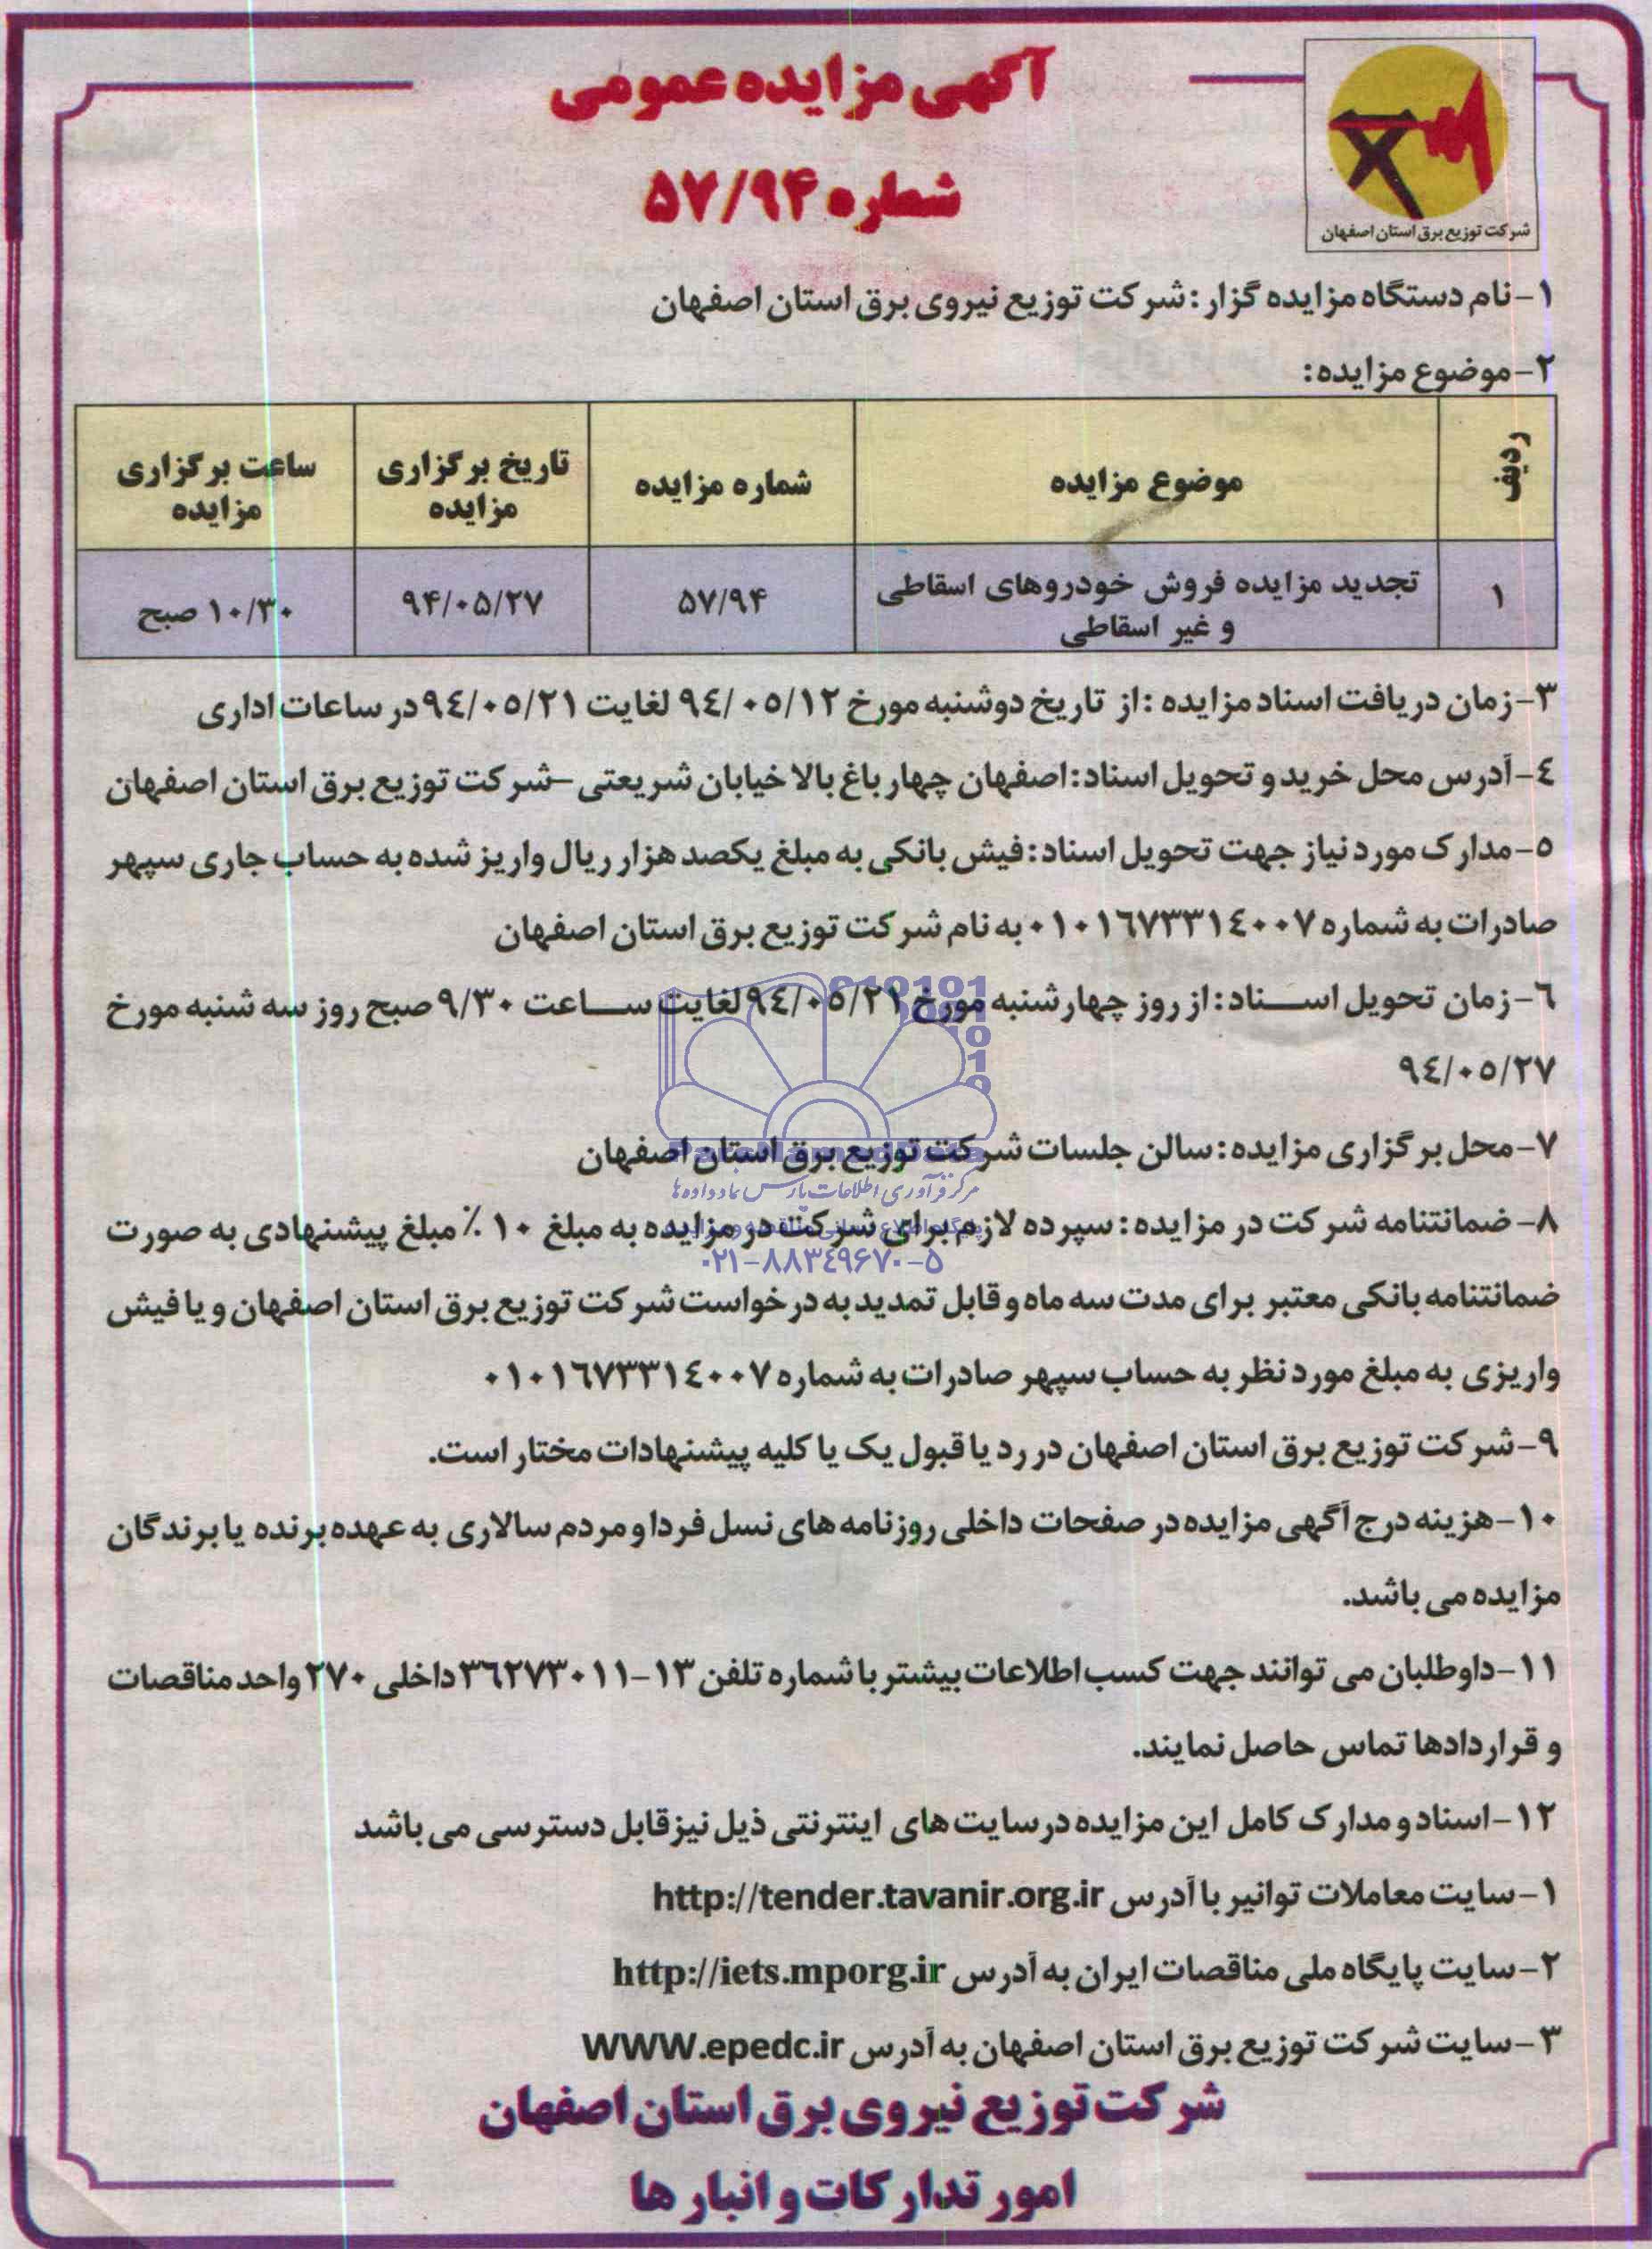 آگهی مزایده عمومی
شماره ۵۷/۹۴
شرکت توزیع برق استان اصفهان
۱- نام دستگاه مزایده گزار: شرکت توزیع نیروی برق استان اصفهان
۲- موضوع مزایده:
ردیف | موضوع مزایده | شماره مزایده | تاریخ برگزاری مزایده | ساعت برگزاری مزایده
۱ | تجدید مزایده فروش خودروهای اسقاطی و غیر اسقاطی | ۵۷/۹۴ | ۹۴/۰۵/۲۷ | ۱۰/۳۰ صبح
۳- زمان دریافت اسناد مزایده: از تاریخ دوشنبه مورخ ۹٤/۰۵/۱۲ لغایت ۹٤/۰۵/۲۱ در ساعات اداری
٤- آدرس محل خرید و تحویل اسناد: اصفهان چهار باغ بالا خیابان شریعتی – شرکت توزیع برق استان اصفهان
۵- مدارک مورد نیاز جهت تحویل اسناد: فیش بانکی به مبلغ یکصد هزار ریال واریز شده به حساب جاری سپهر
صادرات به شماره ۰۱۰۱٦۷۳۳۱٤۰۰۷ به نام شرکت توزیع برق استان اصفهان
٦- زمان تحویل اسـناد: از روز چهارشنبه مورخ ۹٤/۰۵/۲۱ لغایت سـاعت ۹/۳۰ صبح روز سه شنبه مورخ
۹٤/۰۵/۲۷
۷- محل برگزاری مزایده: سالن جلسات شرکت توزیع برق استان اصفهان
مرکز فرآوری اطلاعات پارس نماد داده ها
۸- ضمانتنامه شرکت در مزایده: سپرده لازم برای شرکت در مزایده به مبلغ ۱۰٪ مبلغ پیشنهادی به صورت
۰۲۱-۸۸۳٤۹۶۷۰-۵
ضمانتنامه بانکی معتبر برای مدت سه ماه و قابل تمدید به درخواست شرکت توزیع برق استان اصفهان و یا فیش
واریزی به مبلغ مورد نظر به حساب سپهر صادرات به شماره ۰۱۰۱٦۷۳۳۱٤۰۰۷
۹- شرکت توزیع برق استان اصفهان در رد یا قبول یک یا کلیه پیشنهادات مختار است.
۱۰- هزینه درج آگهی مزایده در صفحات داخلی روزنامه های نسل فردا و مردم سالاری به عهده برنده یا برندگان
مزایده می باشد.
۱۱- داوطلبان می توانند جهت کسب اطلاعات بیشتر با شماره تلفن ۱۳-۳٦۲۷۳۰۱۱ داخلی ۲۷۰ واحد مناقصات
و قراردادها تماس حاصل نمایند.
۱۲- اسناد و مدارک کامل این مزایده در سایت های اینترنتی ذیل نیز قابل دسترسی می باشد
۱- سایت معاملات توانیر با آدرس http://tender.tavanir.org.ir
۲- سایت پایگاه ملی مناقصات ایران به آدرس http://iets.mporg.ir
۳- سایت شرکت توزیع برق استان اصفهان به آدرس WWW.epedc.ir
شرکت توزیع نیروی برق استان اصفهان
امور تدارکات و انبار ها